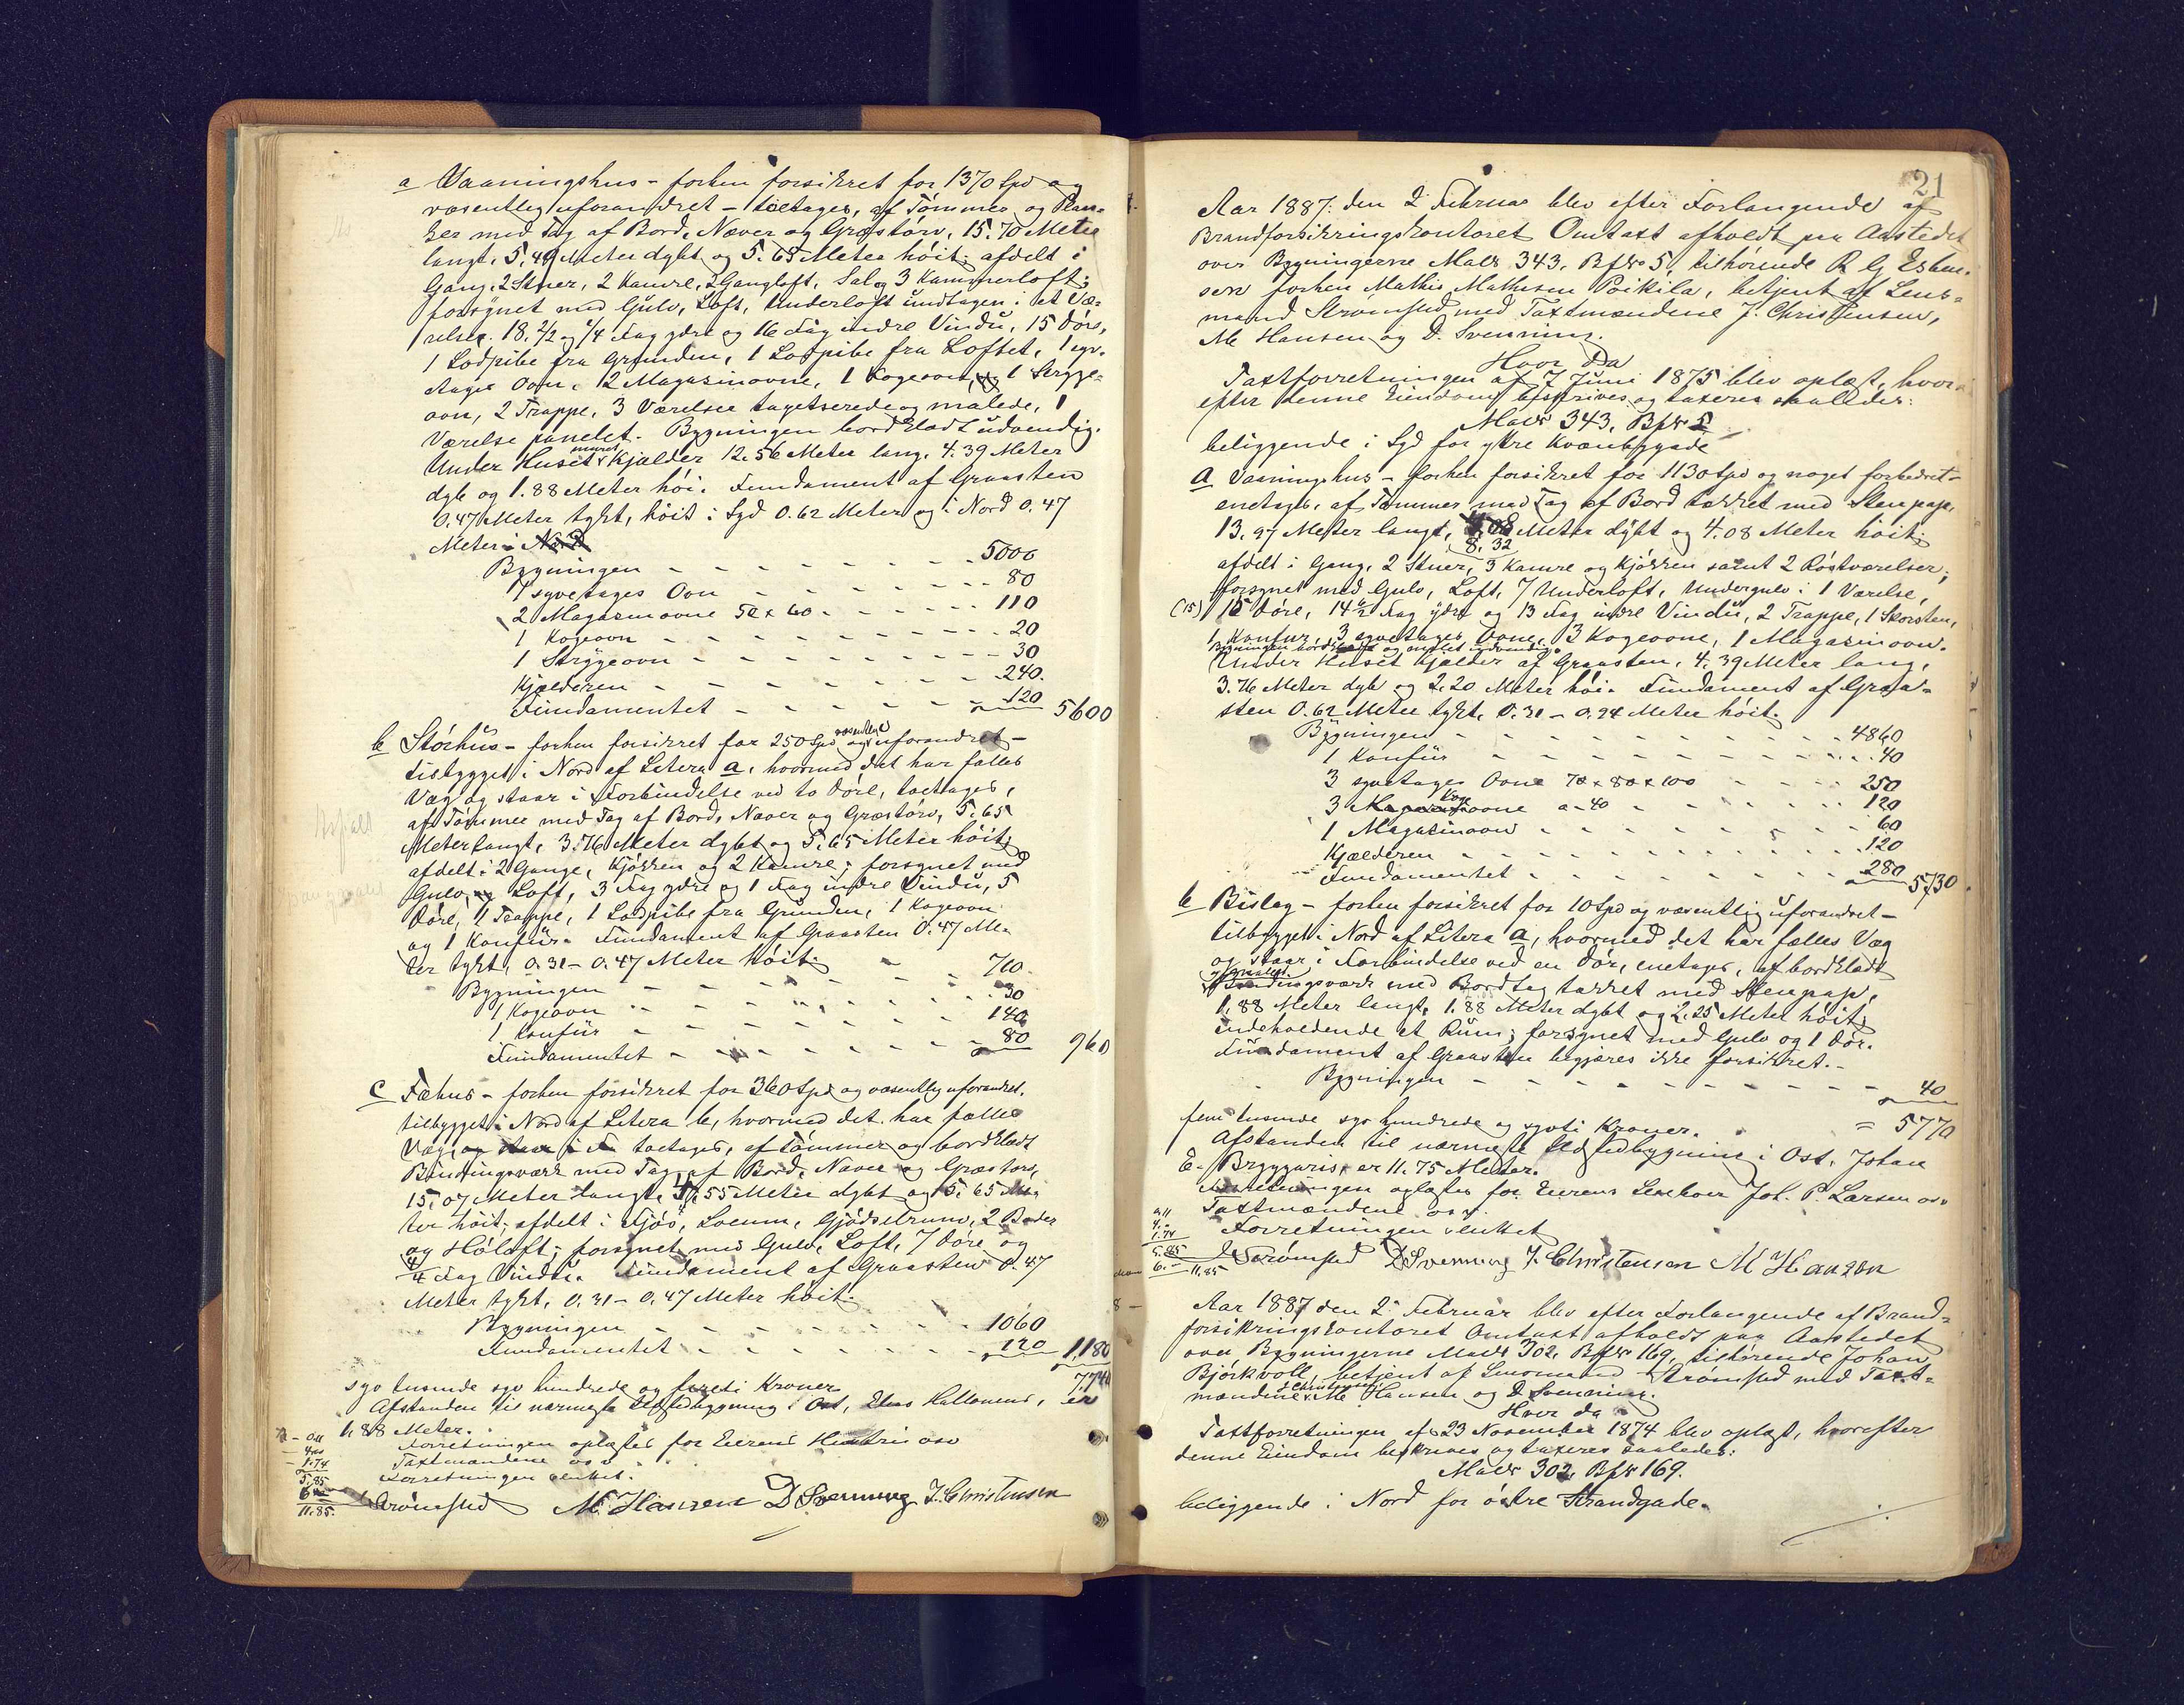 a Vaaningshus - forhen forsikret for 1370 Spd og
væsentlig uforandret - toetages, af Tømmer og Plan-
ker med Tag af Bord, Næver og Græstørv, 15.70 Meter
langt, 5.49 Meter dybt og 5.65 Meter høit; afdelt i
Gang, 2 Stuer, 2 Kamre, 2 Gangloft, Sal og 3 Kammerloft;
forsynet med Gulv, Loft, Underloft undtagen i et Væ-
relse. 18. 2/2 og 4/4 Fag ydre og 16 Fag indre Vindu, 15 Døre,
1 Lodpibe fra Grunden, 1 Lodpibe fra Loftet, 1 syv-
etages Ovn, 2 Magasinovne, 1 Kogeovn, og 1 Stryge-
ovn, 2 Trappe, 3 Værelser tapetserede og malede, 1
Værelse panelet. Bygningen bordklædt udvendig.
Under Huset muret Kjælder 12.56 Meter lang, 4.39 Meter
dyb og 1.88 Meter høi. Fundament af Graasten
0.47 Meter tykt, høit i Syd 0.62 Meter og i Nord 0.47
Meter i Nord
Bygningen - - - - 5000
1 syvetages Ovn - - - 80
2 Magasinovne 50 x 60 - - - 110
1 Kogeovn - - - - 20
1 Strygeovn - - - - 30
Kjælderen - - - - 240.
Fundamentet - - - - 120 5600
b Størhus - forhen forsikret for 250 Spd og væsentligt uforandret -
tilbygget i Nord af Litera a, hvormed det har fælles
Væg og staar i Forbindelse ved to Døre, toetages,
af Tømmer med Tag af Bord, Næver og Græstørv, 5.65
Meter langt, 3.76 Meter dybt og 5.65 Meter høit;
afdelt i 2 Gange, Kjøkken og 2 Kamre; forsynet med
Gulv, og Loft, 3 Fag ydre og 1 Fag indre Vindu, 5
Døre, 1 Trappe, 1 Lodpibe fra Grunden, 1 Kogeovn
og 1 Komfür. Fundament af Graasten 0.47 Me-
ter tykt, 0.31 - 0.47 Meter høit.
Bygningen - - - - 710.
1 Kogeovn - - - - 30
1 Komfür - - - - 140
Fundamentet - - - - 80 960
c Fæhus - forhen forsikret for 360 Spd og væsentlig uforandret.
tilbygget i Nord af Litera b, hvormed det har fælles
Væg, og staar i F toetages, af Tømmer og bordklædt
Bindingsværk med Tag af Bord, Næver og Græstørv,
15.07 Meter langt, 4.55 Meter dybt og 5.65 Me-
ter høit; afdelt i Fjøs, Lorum, Gjødselrum, 2 Boder
og Høloft; forsynet med Gulv, Loft, 7 Døre og
4/4 Fag Vindu. Fundament af Graasten 0.47
Meter tykt, 0.31 - 0.47 Meter høit.
Bygningen - - - - 1060
Fundamentet - - - - 120 1,180
7,740
syv tusende syv hundrede og fireti Kroner
Afstanden til nærmeste Ildstedbygning i Øst, Kallonens, er
1.88 Meter.
Forretningen oplæstes for Eierens Hustru osv
Taxtmændene osv
Forretningen sluttet.
1.74
5.85
6.-
11.85.
Strømsted M. Hansen D Svenning J. Christensen
21
Aar 1887 den 2 Februar blev efter Forlangende af
Brandforsikringskontoret Omtaxt afholdt paa Aastedet
over Bygningerne Matr 343. Bfr 5, tilhørende R G Esben-
sen forhen Mathis Mathisen Poikila, betjent af Lens-
mand Strømsted med Taxtmændene J. Christensen,
M Hansen og D. Svenning.
Hvor Da
Taxtforretningen af 7 Juni 1875 blev oplæst, hvor-
efter denne Eiendom beskrives og taxeres saaledes:
Matr 343, Bfr 5
beliggende i Syd for ytre Kvænbygade
a Vaaningshus - forhen forsikret for 1130 Spd og noget forbedret -
enetages, af Tømmer med Tag af Bord tækket med Stenpap,
13.97 Meter langt, 8.32 Meter dybt og 4.08 Meter høit;
afdelt i Gang, 2 Stuer, 3 Kamre og Kjøkken samt 2 Røstværelser;
forsynet med Gulv, Loft, 7 Underloft, Undergulv i 1 Værelse,
(15) 15 Døre, 14 2/2 Fag ydre og 13 Fag indre Vindu, 2 Trappe, 1 Skorsten,
1 Komfur, 3 syvetages Ovne, 3 Kogeovne, 1 Magasinovn.
Bygningen bordklædt og malet udvendig.
Under Huset Kjælder af Graasten, 4.39 Meter lang,
3.76 Meter dyb og 2.20 Meter høi. Fundament af Graa-
sten 0.62 Meter tykt, 0.31 - 0.94 Meter høit.
Bygningen - - - - 4860
1 Komfür - - - - 40
3 syvetages Ovne 70 x 80 x 100 - - 250
3 Kogeovne a 40 - - - 120
1 Magasinovn - - - - 60
Kjælderen - - - - 120
Fundamentet - - - - 280 5730
b Bislag - forhen forsikret for 10 Spd og væsentlig uforandret -
tilbygget i Nord af Litera a, hvormed det har fælles Væg
og staar i Forbindelse ved en Dør, enetages, af bordklædt
og malet
Bindingsværk med Bordtag tækket med Stenpap,
1.88 Meter langt, 1.88 Meter dybt og 2.25 Meter høit;
indeholdende et Rum; forsynet med Gulv og 1 Dør.
Fundament af Graasten begjæres ikke forsikret.-
Bygningen - - - - 40
fem tusende syv hundrede og sytti Kroner. = 5770
Afstanden til nærmeste Ildstedbygning i Øst, Johan
E. Bryggaris, er 11.75 Meter.
Forretningen oplæstes for Eierens Leieboer Joh. P. Larsen osv
Taxtmændene osv.
Forretningen sluttet
1.74
5.85
6.-
11.85
Strømsted D Svenning J. Christensen M Hansen
Aar 1887 den 2 Februar blev efter Forlangende af Brand-
forsikringskontoret Omtaxt afholdt paa Aastedet
over Bygningerne Matr 302. Bfr 169, tilhørende Johan
Bjørkvoll, betjent af Lensmand Strømsted med Taxt-
mændene J Christensen, M Hansen og D Svenning.
Hvor da
Taxtforretningen af 23 November 1874 blev oplæst, hvorefter
denne Eiendom beskrives og taxeres saaledes:
Matr 302, Bfr 169.
beliggende i Nord for østre Strandgade.